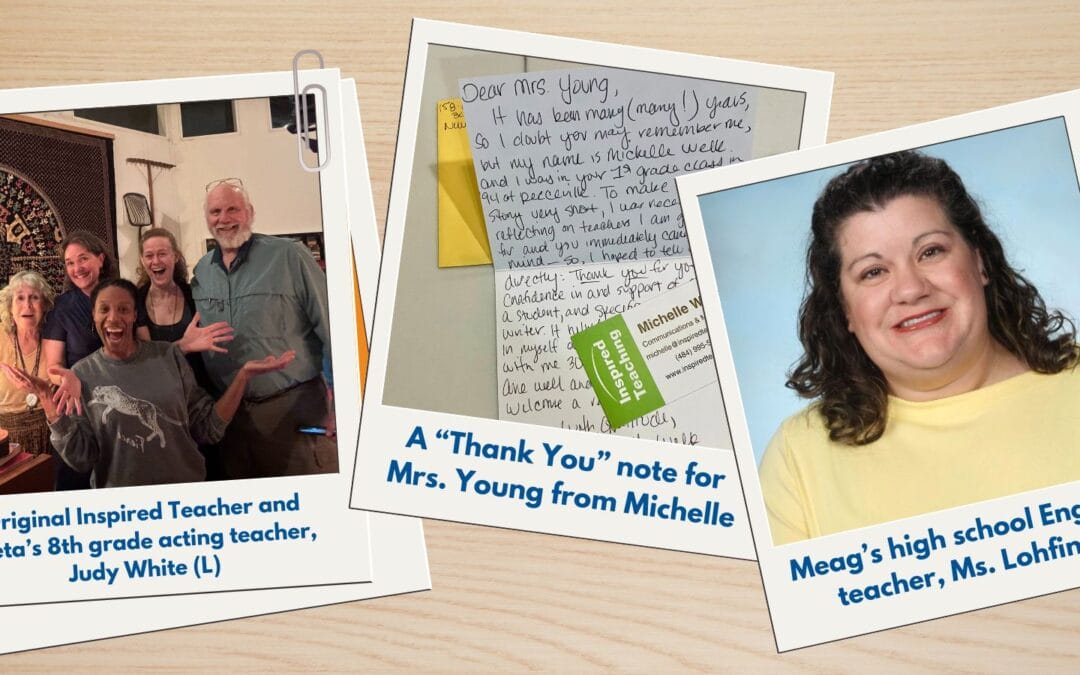 riginal Inspired Teacher and
eta’s 8th grade acting teacher,
Judy White (L)
Dear Mrs. Young,
It has been many (many!) years,
so I doubt you may remember me,
but my name is Michelle Welk
and I was in your 1st grade class in
To make
story very short, I was
reflecting on teachers I am
for and you immediately
mind. So, I hoped to tell
directly: Thank you for
confidence in and support of
a student, and
writer. It
in myself
with me 30
are well and
welcome a
with gratitude,
Inspired
Teaching
Michelle W
Communications & M
michelle@inspiredte
(484) 995-5
www.inspiredtea
A “Thank You” note for
Mrs. Young from Michelle
Meag’s high school Eng
teacher, Ms. Lohfin